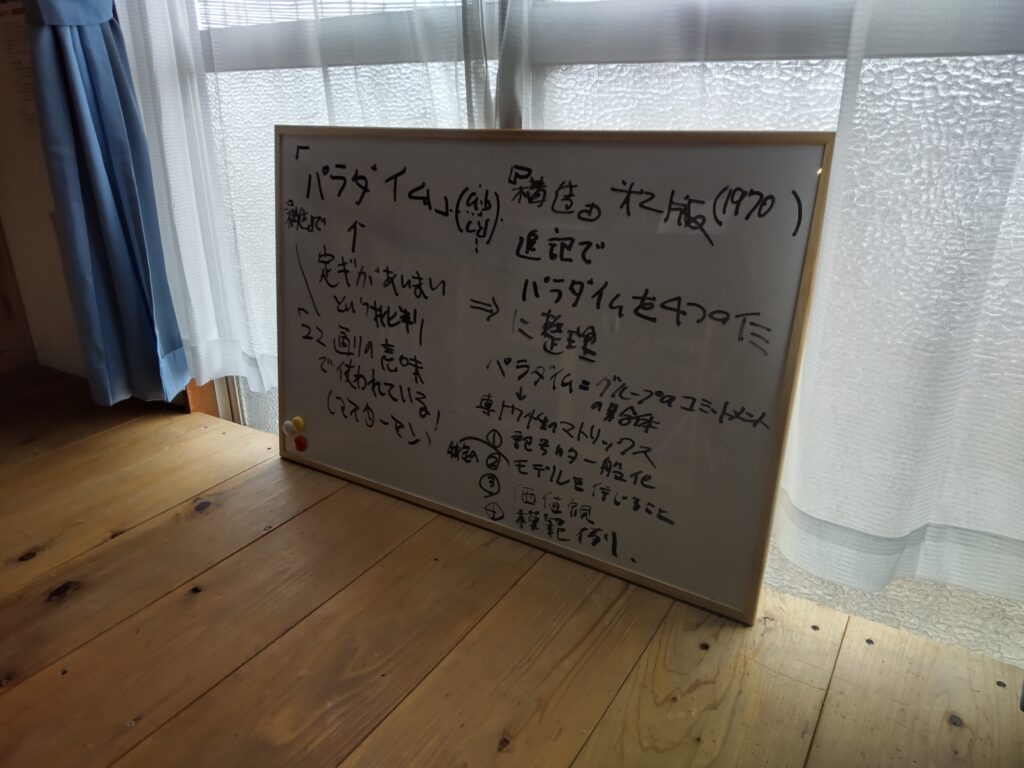 「パラダイム」(a,b
c,d)
『構造』で
↑
定ぎがあいまい
という批判
22通りの意味
で使われている!
(マスターマン)
『構造』 第二版(1970)
追記で
⇒ パラダイムを4つの
に整理
パラダイム=グループのコミットメント
の集合体
↓
専門性のマトリックス
① 記号的一般化
② モデルを信じること
③ 価値観
④ 模範例、